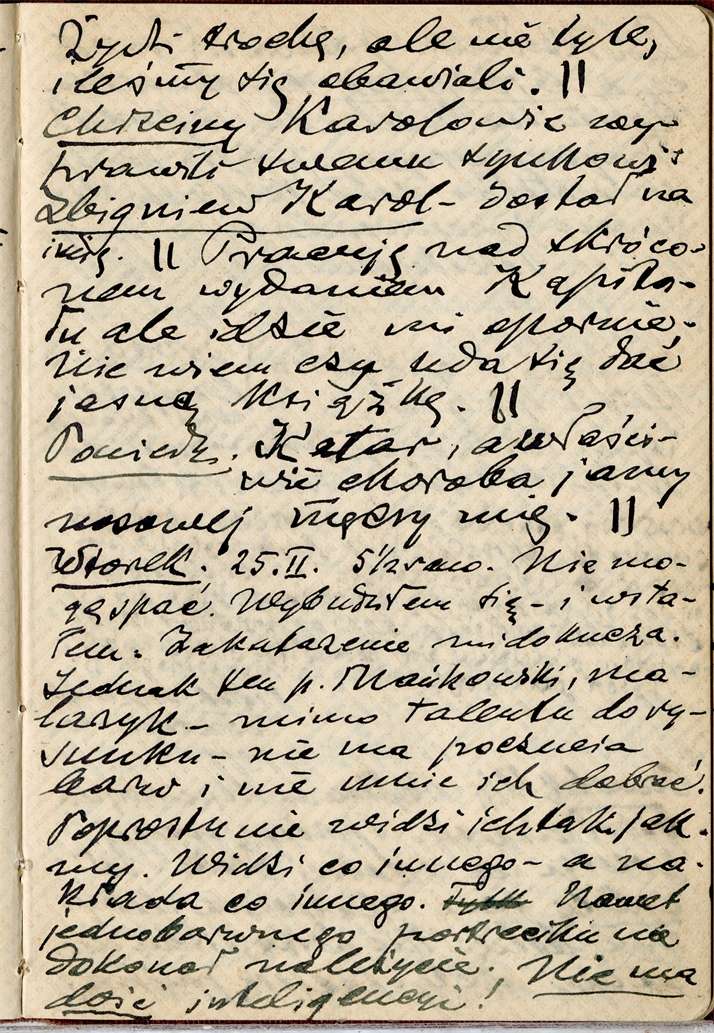 trochę, ale nie tyle,
ileśmy się obawiali. ||
Chrzciny Karolowie wy-
prawili swemu synkowi:
Zbigniew Karol – dostał na
imię. || Pracuję nad skróco-
nem wydaniem Kapita-
łu ale idzie mi opornie.
Nie wiem czy uda się dać
jasną książkę. ||
Poniedz. Katar, a właści-
wie choroba jamy
nosowej męczy mię. ||
Wtorek. 25.II. 5½ rano. Nie mo-
gę spać. Wybudziłem się – i wsta-
łem. Zakatarzenie mi dokucza.
Jednak ten p. Mańkowski, ma-
larzyk – mimo talentu do ry-
sunku – nie ma poczucia
barw i nie umie ich dobrać.
Poprostu nie widzi ich tak, jak
my. Widzi co innego – a na-
kłada co innego. Tylk Nawet
jednobarwnego portreciku nie
dokonał należycie. Nie ma
dość inteligencji!